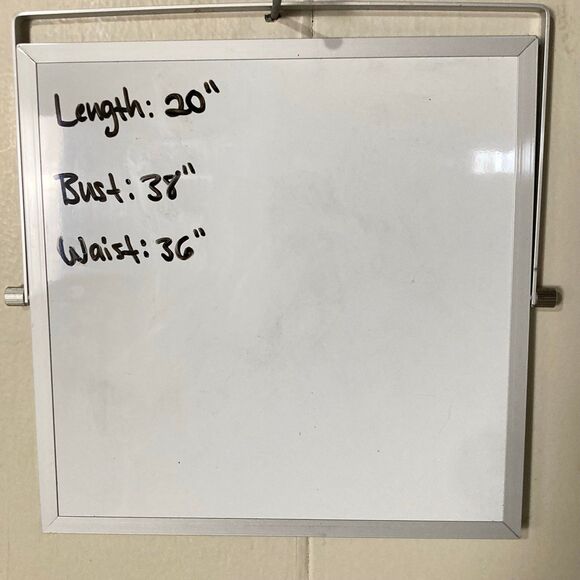 Length: 20"
Bust: 38"
Waist: 36"